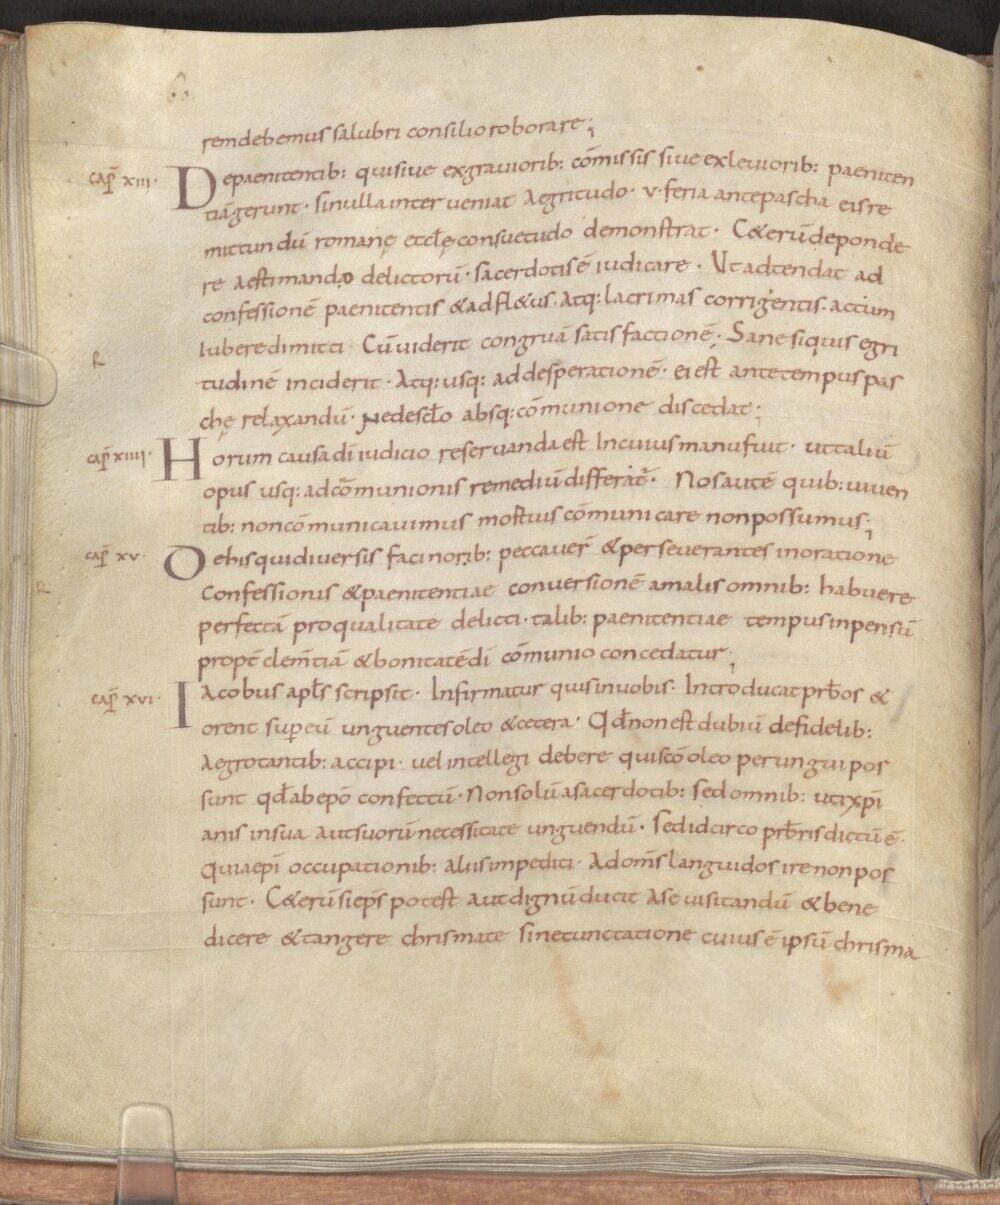 remdebemus salubri consilio roborare;
cap̄ xiii· Depaenitentib: quisiue exgrauiorib: cōmissis siue exleuiorib: paeniten
tiā gerunt· sinulla interueniat Aegritudo· v· feria antepascha eisre
mittundū romanę etclę consuetudo demonstrat· C&erū deponde
re aestimando delictorū· sacerdotis ē iudicare· Ut adtendat ad
confessionē paenitentis &adfl&us· Atq: lacrimas corrigentis· actum
Iubere dimitti Cū uiderit congruā satisfactionē; Sane siquis egri
tudinē inciderit· Atq: usq: addesperationē· ei est antetempus pas
chę relaxandū· Nedesclo absq: cōmunione discedat;
cap̄ xiiii· Horum causa di iudicio reseruanda est Incuius manu fuit· ut taliū
opus usq: ad cōmunionis remediū differat̄· Nos autē quib: uiuen
tib: non cōmunicauimus mortuis cōmunicare non possumus;
cap̄ xv· Dehis qui diuersis facinorib: peccauer̄ &perseuerantes inoratione
Confessionis &paenitentiae conuersionē amalis omnib: habuere
perfectā pro qualitate delicti· talib: paenitentiae tempus inpensū
propt̄ clem̄tiā &bonitatē di cōmunio concedatur;
cap̄ xvi· Iacobus apls scripsit· Infirmatur quis inuobis· Introducat prbos &
orent sup eū unguentes oleo &cetera· Qđ non est dubiū defidelib:
Aegrotantib: accipi· uel intellegi debere qui scō oleo perungui pos
sunt qđ ab epō confectū· Non solū asacerdotib: sed omnib: uti xp̄i
anis insua aut suorū necessitate unguendū· Sed idcirco prbris dictū ē·
Quia epi occupationib: aliis impediti· Adom̄s languidos ire non pos
sunt· C&erū si eps potest aut dignū ducit Ase uisitandū &bene
dicere &tangere chrismate sine cunctatione cuius ē ipsū chrisma